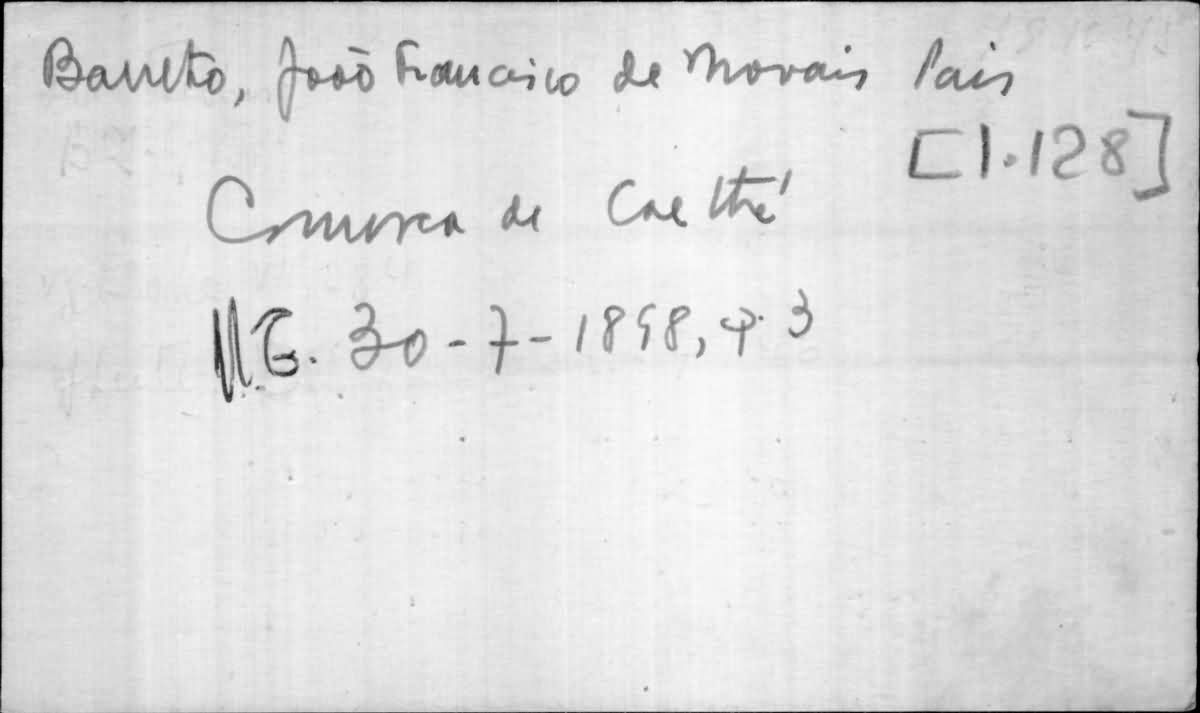 Barreto, João Francisco de Morais Pais
[1.128]
Comarca de Caethé
M G. 30-7-1898, p. 3